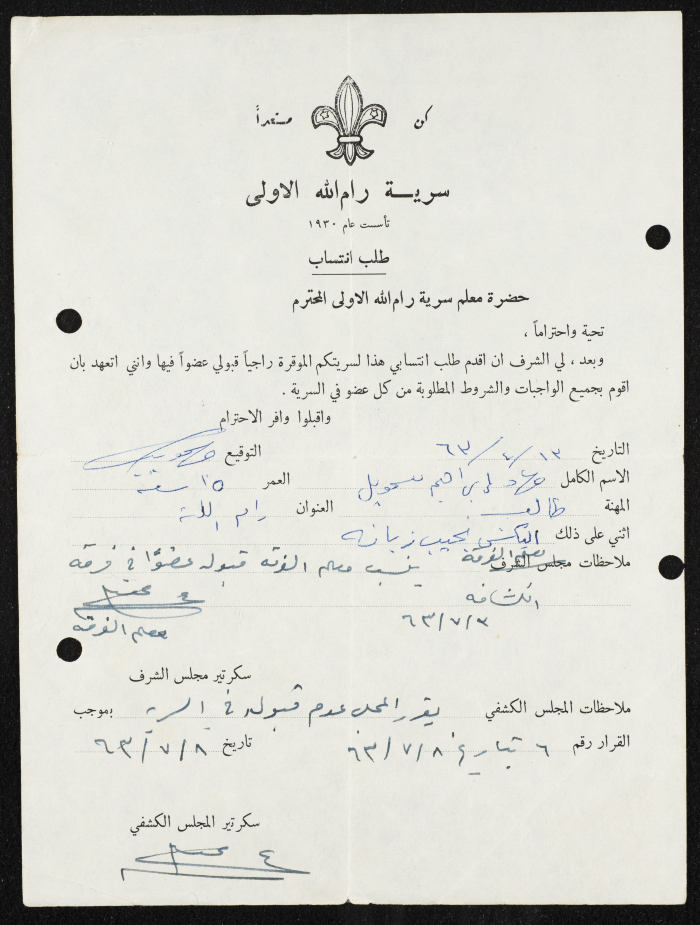 كن مستعداً
سريـــة رام الله الاولى
تأسست عام ١٩٣٠
طلب انتساب
حضرة معلم سرية رام الله الاولى المحترم
تحية واحتراماً ،
وبعد ، لي الشرف ان اقدم طلب انتسابي هذا لسريتكم الموقرة راجياً قبولي عضواً فيها وانني اتعهد بان
اقوم بجميع الواجبات والشروط المطلوبة من كل عضو في السرية .
واقبلوا وافر الاحترام
التاريخ ١٣/٤/٦٣ التوقيع
الاسم الكامل إبراهيم العمر ١٥ سنة
المهنة طالب العنوان رام الله
اثني على ذلك نجيب زبانه
ملاحظات معلم الفرقة ينسب معلم الفرقة قبوله عضوًا في فرقة
الكشافه
٦٣/٧/٣
معلم الفرقة
سكرتير مجلس الشرف
ملاحظات المجلس الكشفي يقرر المجلس عدم قبوله في السرية بموجب
القرار رقم ٦ بتاريخ ٦٣/٧/٨ تاريخ ٦٣/٧/٨
سكرتير المجلس الكشفي